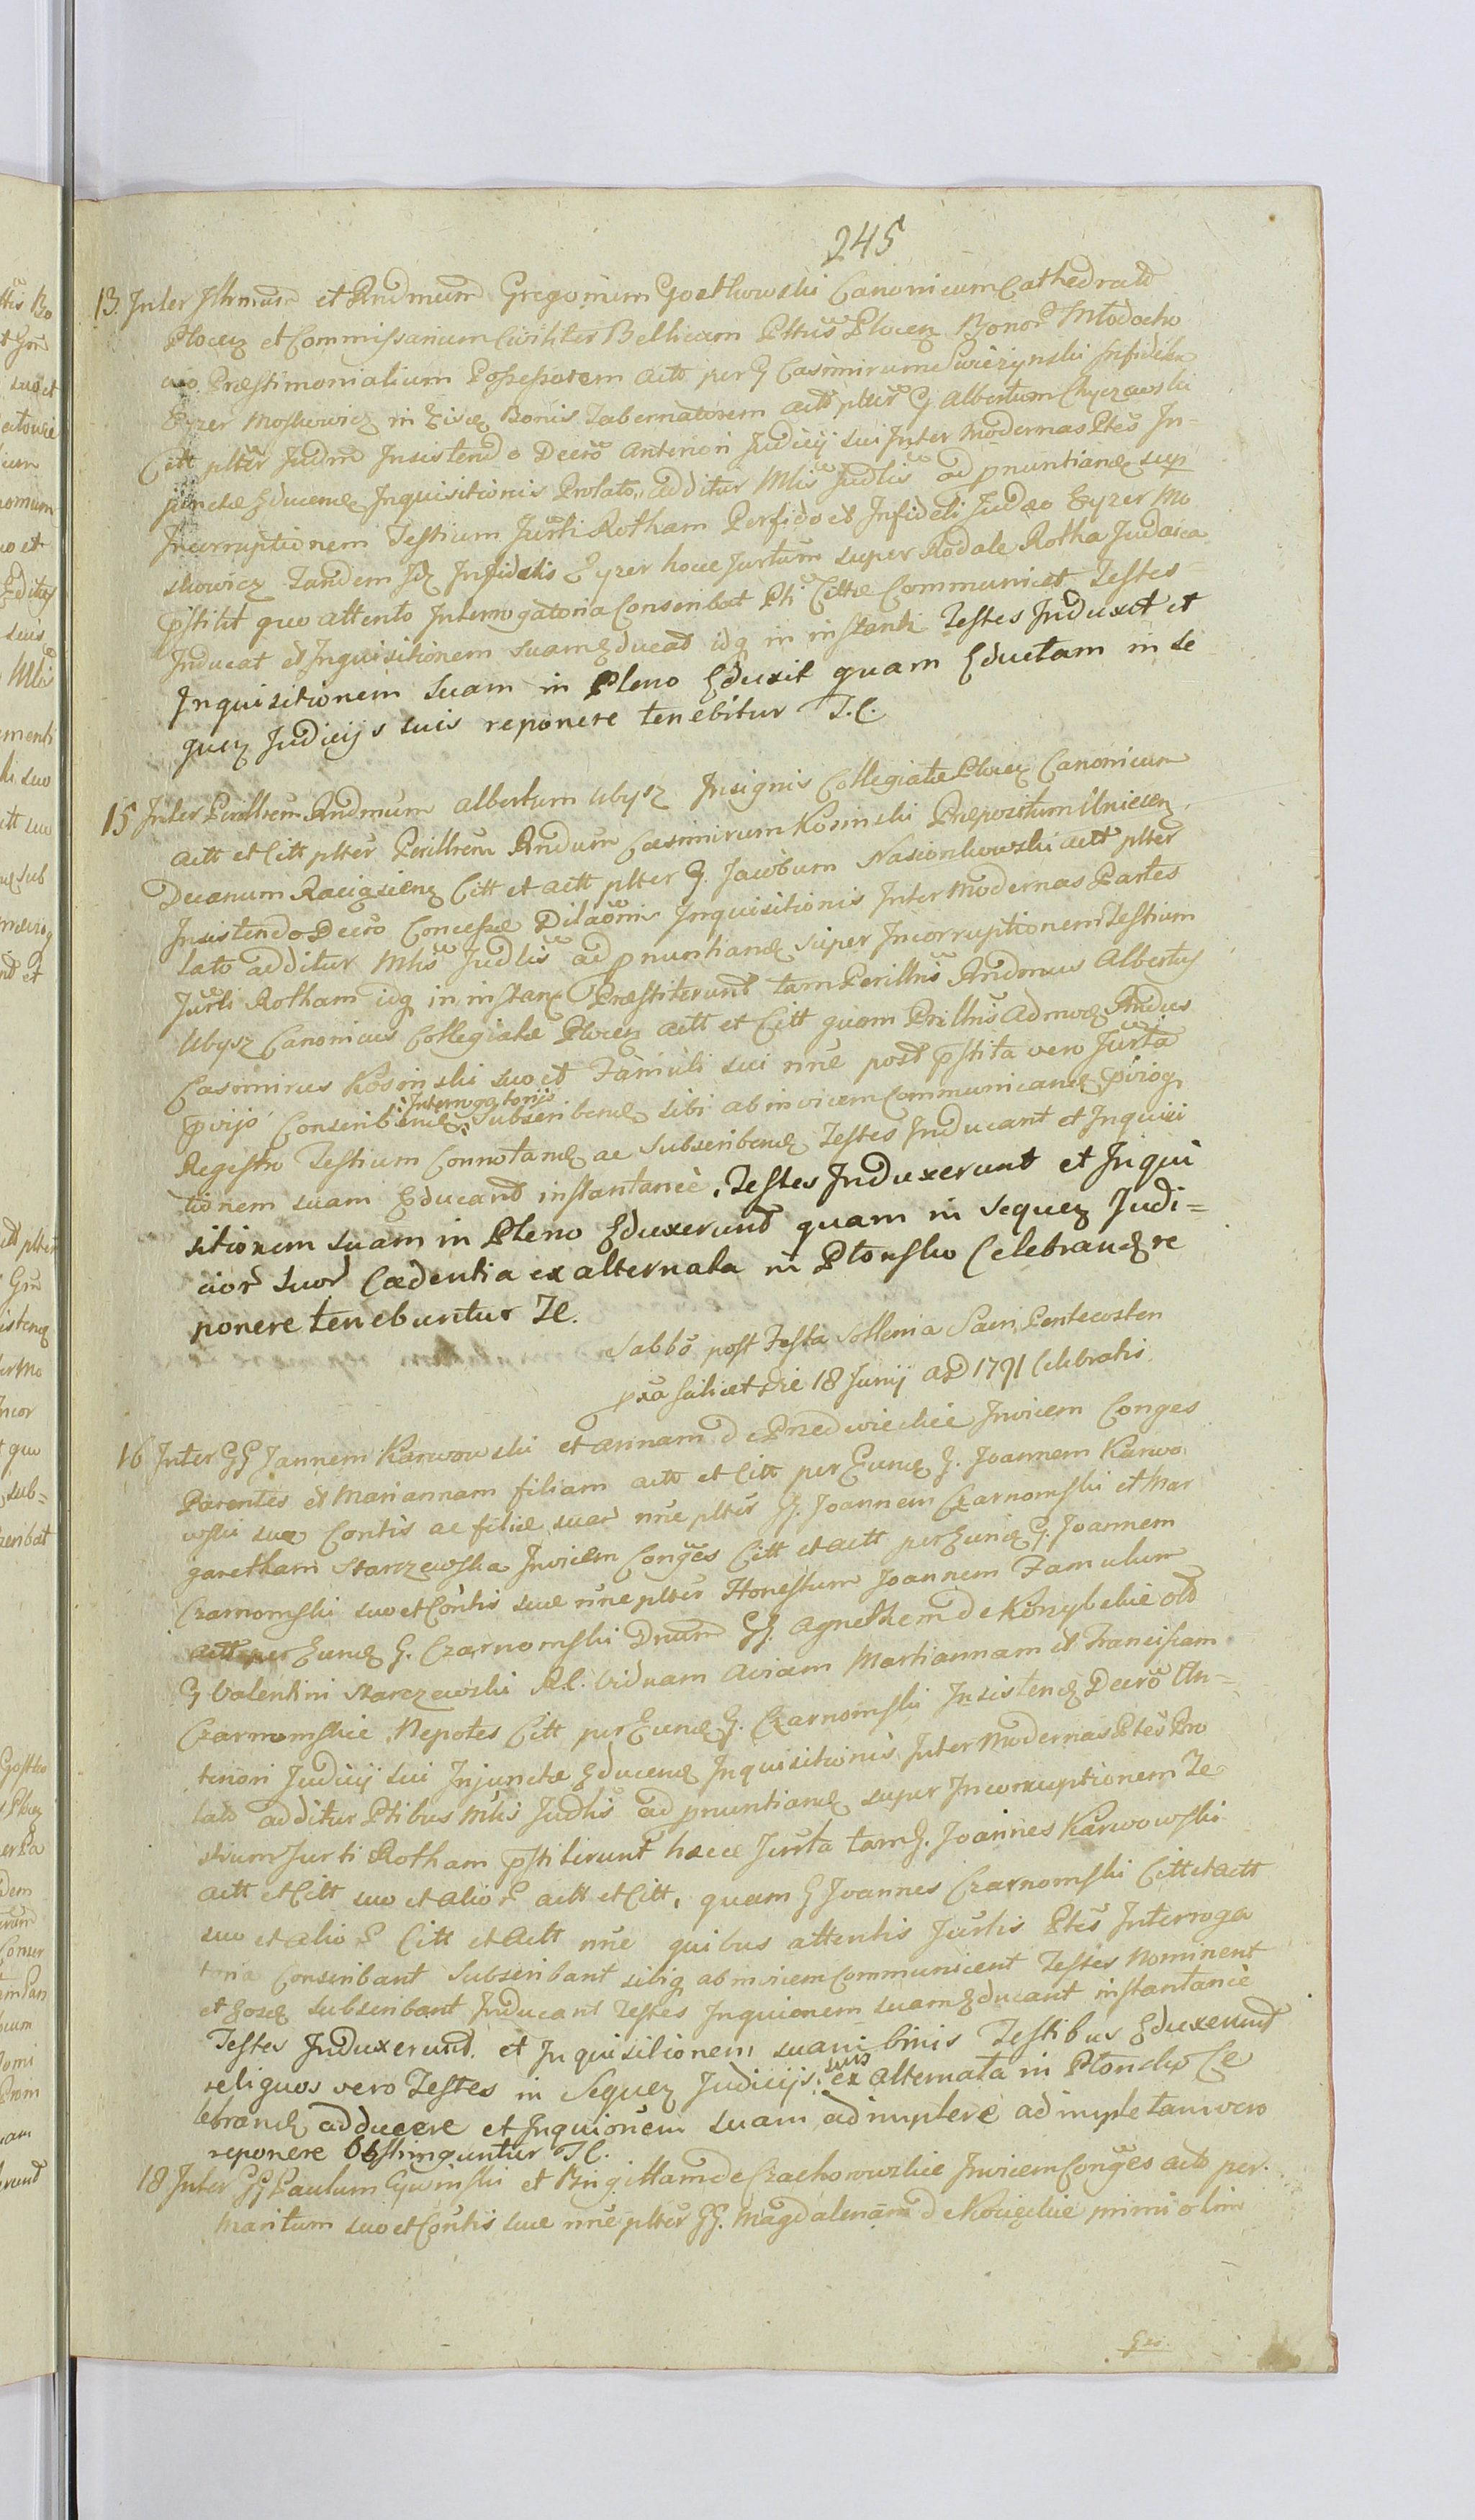 245
13. Inter Illrmum et Rndmum Gregorium Gosthowski Canonicum Cathedralē
Plocen̄ et Commissarium Civiliter Bellicum Pttus Plocen̄ Bonor Młodocho
wo Præstimonialium Possessorem actt per G Casimirum Swiezynski Infidelem
Eyzer Moszkowicz in Eisdē Bonis Tabernatorem actt plter G. Albertum Chyczewski
Citt plter Judm Insistendo Decro Anteriori Judicij sui Inter Modernas Ptes In-
junctæ Educendæ Inquisitionis Prolato, additur Mlis Judlis ad pnuntiandē sup
Incorruptionem Testium Jurti Rotham Perfido et Infideli Judæo Eyzer Mo
szkowicz Tandem Idē Infidelis Eyzer hocce Jurtum super Rodale Rotha Judaica
pstitit quo attento Interrogatoria Conseribat Pti Cittæ Communicet Testes
Inducat et Inquisitionem suam Educat idq in instanti Testes Induxit et
Inquisitionem suam in Pleno Eduxit quam Eductam in se
quen̄ Judicijs suis reponere tenebitur T.C.
15 Inter Perillrem Rndmum Albertum Ubysz Insignis Collegiatæ Plocen̄ Canonicum
actt et Citt plter Perillrem Rndum Casimirum Kosinski Præpositum Uniecen̄
Decanum Raciązien̄ Citt et actt plter G. Jacobum Nasionkowski actt plter
Insistendo Decro Concessæ Dilaonis Inquisitionis Inter Modernas Partes
lato additur Mlis Judlis ad pnuntiandē super Incorruptionem Testium
Jurti Rotham idq in instan̄ Præstiterunt tam Perillris Rndmus Albertus
Ubysz Canonicus Collegiatæ Plocen̄ actt et Citt quam Prillris Admodē Rndus
Casimirus Kosinski suo et Famuli sui nne post pstita vero Jurta
pvijs Conseribendē Interrogatorijs Subscribendē sibi ab invicem Communicandē pviog
Registro Testium Connotandē ac Subscribendē Testes Inducant et Inquisi
tionem suam Educant instantanee, Testes Induxerunt et Inqui
sitionem suam in Pleno Eduxerunt quam in sequen̄ Judi=
cior suor Cadentia ex alternata in Płonsko Celebrandē re
ponere tenebuntur Tl.
Sabbo post Festa Sollenia Sacri Pentecosten
pxa scilicet die 18 Junij AD 1791 Celebratis
16 Inter GG Joannem Karwowski et annam de Przedwieckie Invicem Conges
Parentes et Mariannam filiam actt et Citt per Eundē G. Joannem Karwo
wski suo Contis ac filiæ suar nne plter G. Joannem Czarnomski et Mar
garetham Starczewska Invicem Conges Citt et actt per Eundē G. Joannem
Czarnomski suo et Contis suæ nne plter Honestum Joannem Famulum
actt per Eundē G. Czarnomski Dnum GG. Agnethem de Konzybelie old
G Valentini Starczewski R.C. Viduam Aviam Mariannam et Franciscam
Czarnomskie Nepotes Citt per Eundē G. Czarnomski Insistendē Decro An-
teriori Judicij sui Injunctæ Educendē Inquisitionis Inter Modernas Ptes Pro
lato additur Ptibus Mlis Judlis ad pnuntiandē super Incorruptionem Te
stium Jurti Rotham pstiterunt hæcce Jurta tam G. Joannes Karwowski
actt et Citt suo et alior actt et Citt, quam G Joannes Czarnomski Citt et actt
suo et alior Citt et actt nne quibus attentis Jurtis Ptes Interroga
toria Conseribant Subscribant sibiq ab invicem Communicent Testes Nominent
et Eosdē subscribant Inducant Testes Inquionem suam Educant instantanee
Testes Induxerunt. et Inquisitionem suam binis Testibus Eduxerunt
reliquos vero Testes in Sequen̄ Judicijs suis ex alternata in Płonsko Ce
lebrandē adducere et Inquionem suam adimplere adimpletam vero
reponere Obstringuntur Tl.
18 Inter GG Paulum Gzowmski et Brigittam de Czachowuzkie Invicem Conges actt per
Maritum suo et Contis suæ nne plter GG. Magdalenam de Kocięckie primi olim